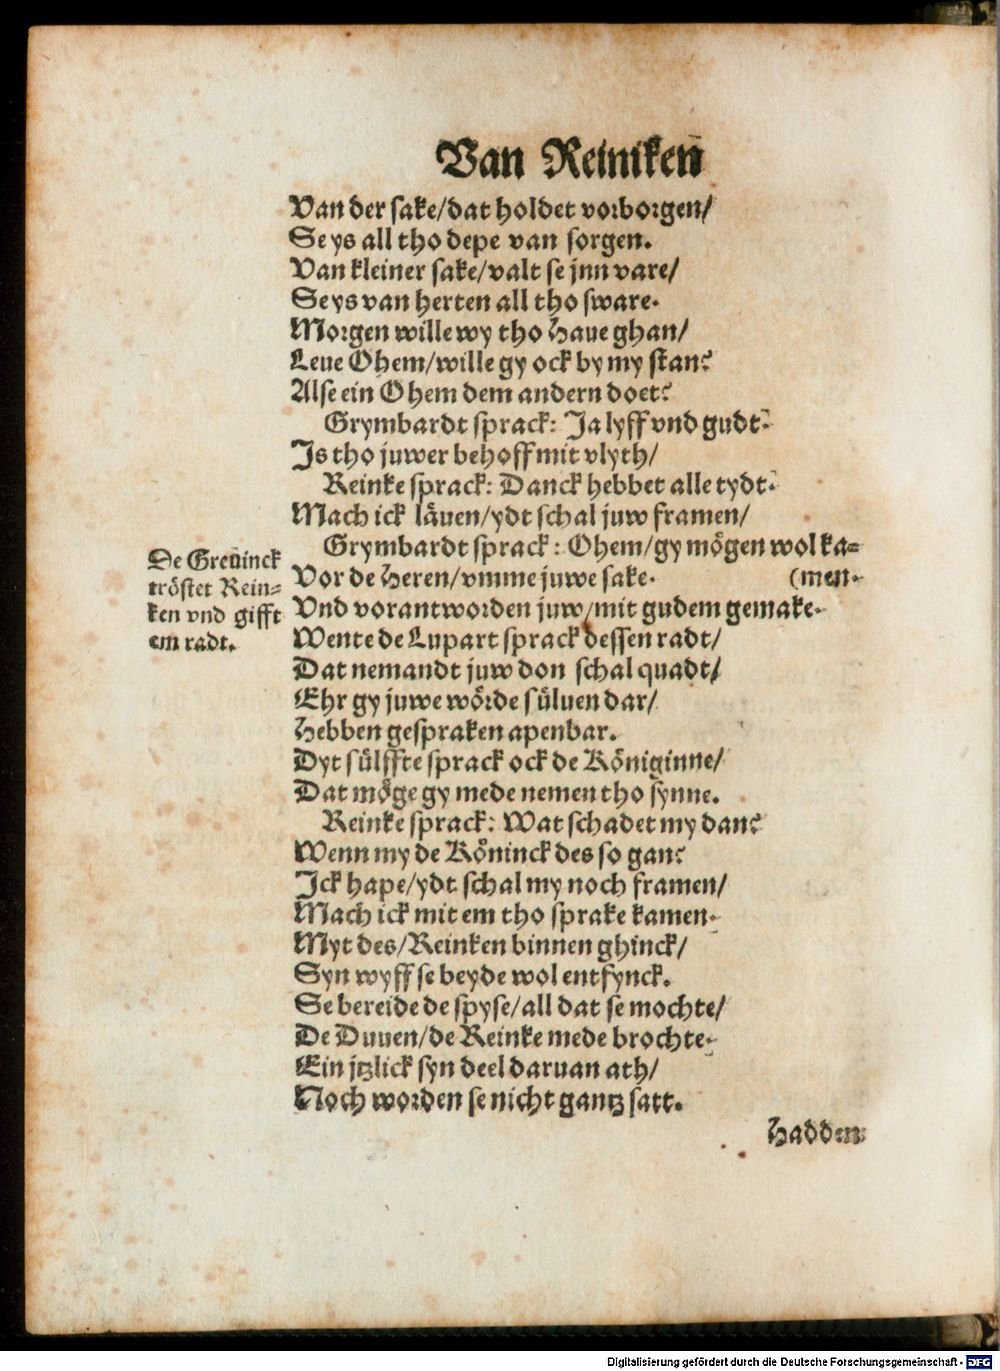 Van Reiniken
Van der sake/dat holdet vorborgen/
Se ys all tho depe van sorgen.
Van kleiner sake/valt se jnn vare/
Se ys van herten all tho sware.
Morgen wille wy tho Haue ghan/
Leue Ohem/wille gy ock by my stan?
Alse ein Ohem dem andern doet?
Grymbardt sprack: Ja lyff vnd gudt.
Is tho juwer behoff mit vlyth/
Reinke sprack: Danck hebbet alle tydt.
Mach ick läuen/ydt schal juw framen/
Grymbardt sprack: Ohem/gy mögen wol ka=
Vor de Heren/vmme juwe sake. (men.
Vnd vorantworden juw/mit gudem gemake.
Wente de Lupart sprack dessen radt/
Dat nemandt juw don schal quadt/
Ehr gy juwe wörde süluen dar/
Hebben gespraken apenbar.
Dyt sülffte sprack ock de Königinne/
Dat möge gy mede nemen tho synne.
Reinke sprack: Wat schadet my dan?
Wenn my de Köninck des so gan?
Ick hape/ydt schal my noch framen/
Mach ick mit em tho sprake kamen.
Myt des/Reinken binnen ghinck/
Syn wyff se beyde wol entfynck.
Se bereide de spyse/all dat se mochte/
De Duuen/de Reinke mede brochte.
Ein jtzlick syn deel daruan ath/
Noch worden se nicht gantz satt.
Hadden
De Greuinck
tröstet Rein=
ken vnd gifft
em radt.
Digitalisierung gefördert durch die Deutsche Forschungsgemeinschaft - DFG